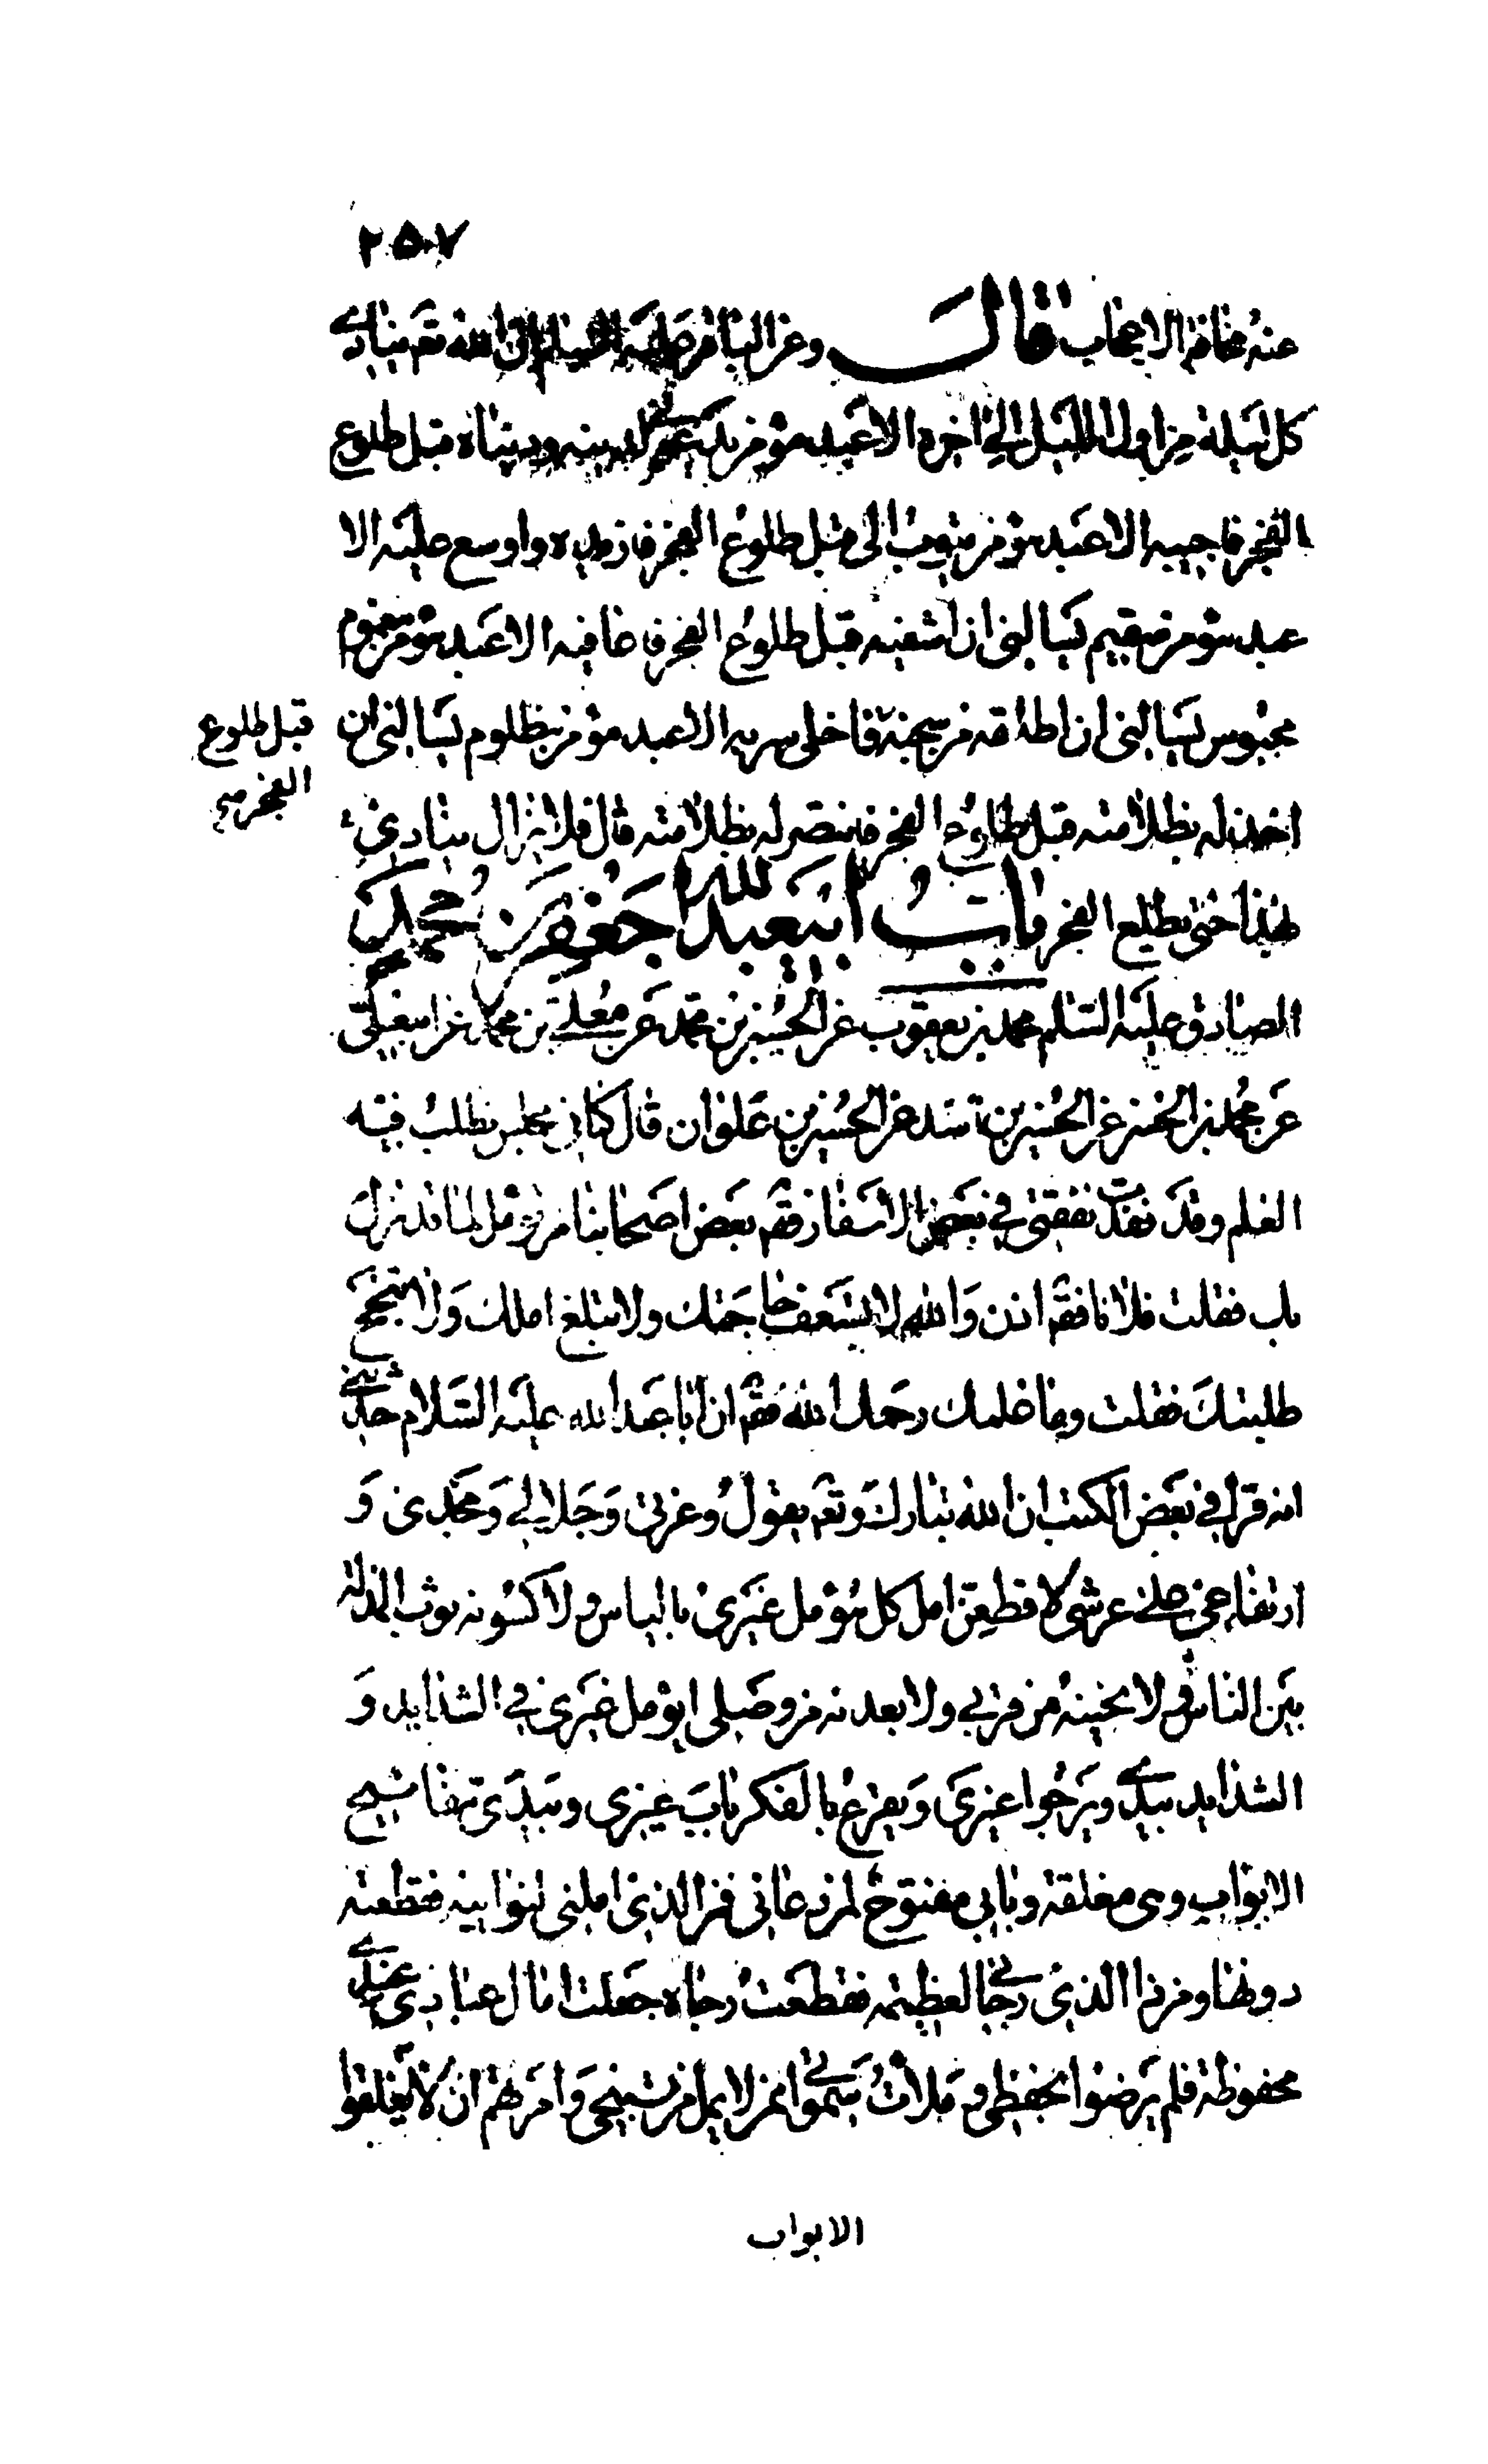 ٢٥٧
عنه مخافة الاعجاب قال وعن الباقر عليه السلام ان الله تعم ينادى
كل ليلة من اول الليل الى اخره الا عبد مؤمن يدعونى لدينه ودنياه قبل طلوع
الفجر فاجيبه الا عبد مؤمن يتوب الى قبل طلوع الفجر فازيده واوسع عليه الا
عبد مؤمن سقيم يسالنى ان اشفيه قبل طلوع الفجر فاعافيه الا عبد مؤمن مغموم
محبوس يسالنى ان اطلقه من سجنه فاخلى سربه الا عبد مؤمن مظلوم يسالنى ان
قبل طلوع
الفجر صح
اخذ له بظلامته قبل طلوع الفجر فانتصر له بظلامته قال فلا يزال ينادى
بهذا حتى يطلع الفجر باب ابيعبد الله جعفر بن محمد
الصادق عليه السلم محمد بن يعقوب عن الحسين بن محمد عن معلى بن محمد عن ابيعلى
عن محمد بن الحسن عن الحسين بن راشد عن الحسين بن علوان قال كنا فى مجلس نطلب فيه
العلم وقد نفدت نفقتى فى بعض الاسفار فقم بعض اصحابنا من تؤمل لما قد نزل
بك فقلت فلانا فقم اذن والله لا يسعف حاجتك ولا يبلغ املك ولا تنجح
طلبتك فقلت وما علمك رحمك الله فقم ان ابا عبد الله عليه السلام حدثنى
انه قرا فى بعض الكتب ان الله تبارك وتعم يقول وعزتى وجلالى ومجدى و
ارتفاعى على عرشى لاقطعن امل كل مؤمل غيرى بالياس ولاكسونه ثوب المذلة
بين الناس ولانحينه من قربى ولابعدنه من وصلى ايؤمل غيرى فى الشدايد و
الشدايد بيدى ويرجوا غيرى ويقرع بالفكر باب غيرى وبيدى مفاتيح
الابواب وهى مغلقة وبابى مفتوح لمن دعانى فمن الذى املنى لنوايبه فقطعته
دونها ومن ذا الذى رجانى لعظيمه فقطعت رجاه جعلت امال عبادى عندى
محفوظة فلم يرضوا بحفظى وملات سمواتى ممن لا يمل من تسبيحى وامرتهم ان لا يغلقوا
الابواب